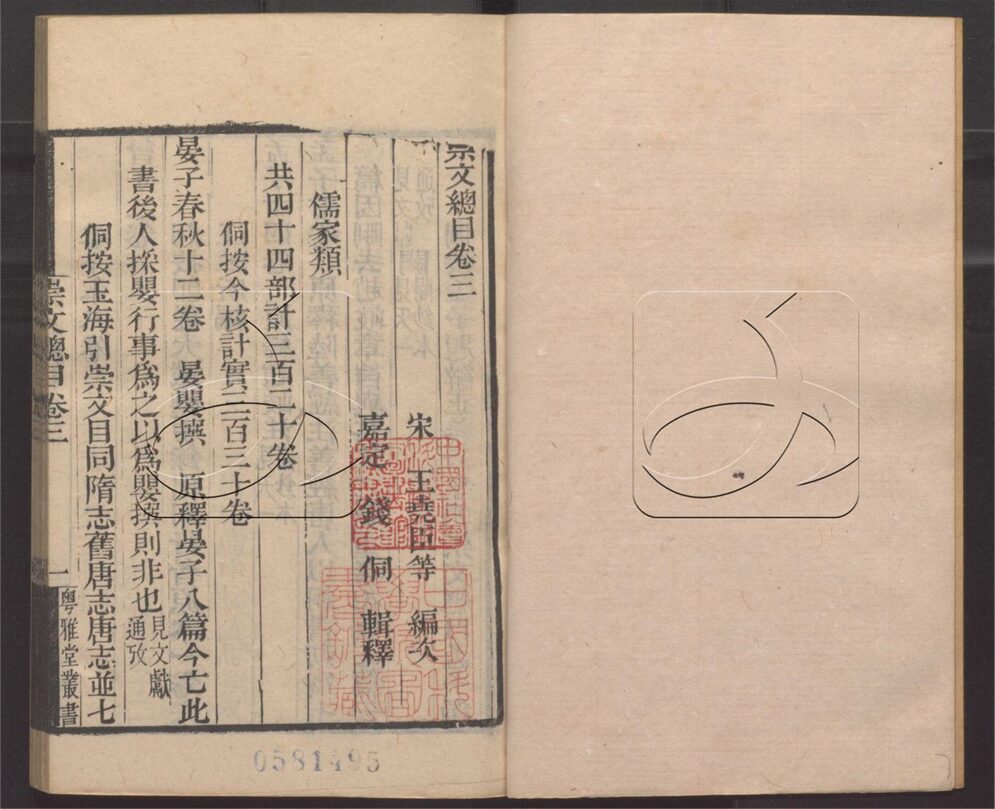 崇文總目卷三
宋 王堯臣等 編次
嘉定 錢侗 輯釋
儒家類
共四十四部計三百二十卷
侗按今核計實三百三十卷
晏子春秋十二卷 晏嬰撰 原釋晏子八篇今亡此
書後人採嬰行事爲之以爲嬰撰則非也見文獻通攷
侗按玉海引崇文目同隋志舊唐志唐志並七
崇文總目卷三
一
粵雅堂叢書
0581495